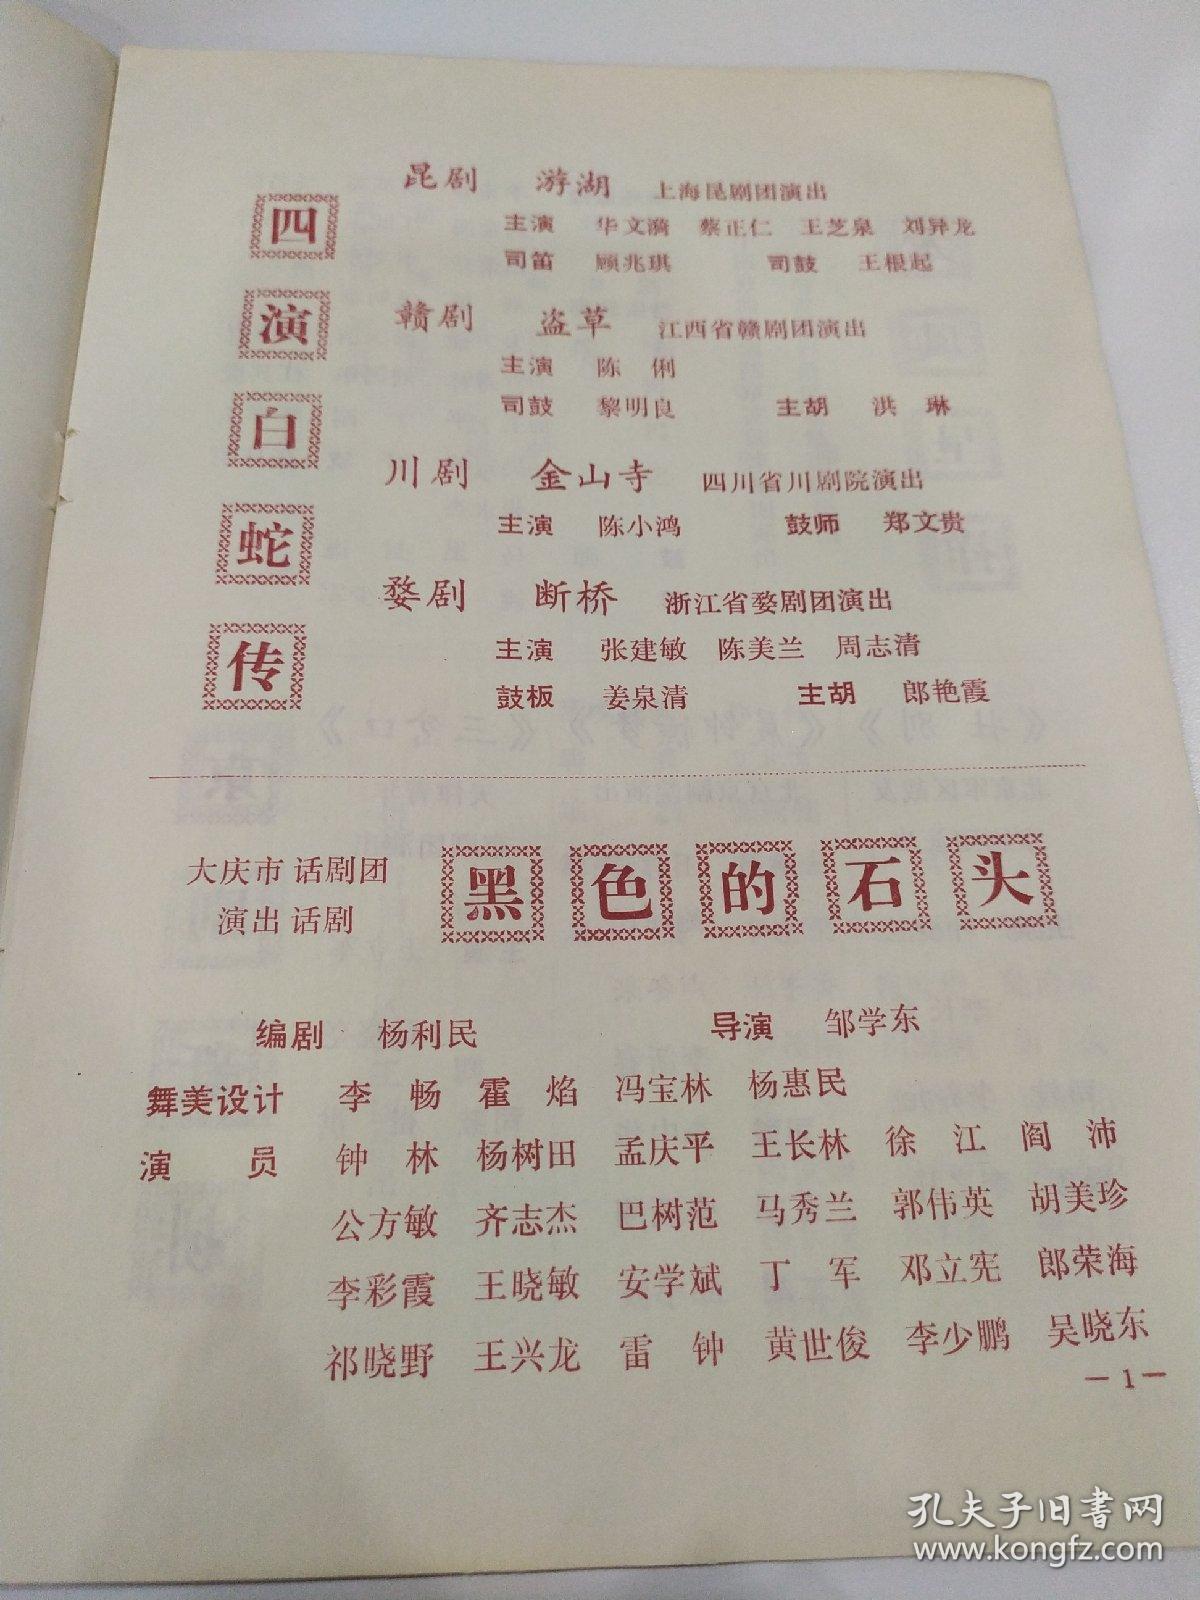 四演白蛇传
昆剧 游湖 上海昆剧团演出
主演 华文漪 蔡正仁 王芝泉 刘异龙
司笛 顾兆琪 司鼓 王根起
赣剧 盗草 江西省赣剧团演出
主演 陈俐
司鼓 黎明良 主胡 洪琳
川剧 金山寺 四川省川剧院演出
主演 陈小鸿 鼓师 郑文贵
婺剧 断桥 浙江省婺剧团演出
主演 张建敏 陈美兰 周志清
鼓板 姜泉清 主胡 郎艳霞
大庆市 话剧团
演出 话剧
黑色的石头
编剧 杨利民 导演 邹学东
舞美设计 李畅 霍焰 冯宝林 杨惠民
演员 钟林 杨树田 孟庆平 王长林 徐江 阎沛
公方敏 齐志杰 巴树范 马秀兰 郭伟英 胡美珍
李彩霞 王晓敏 安学斌 丁军 邓立宪 郎荣海
祁晓野 王兴龙 雷钟 黄世俊 李少鹏 吴晓东
—1—
孔夫子旧书网
www.kongfz.com